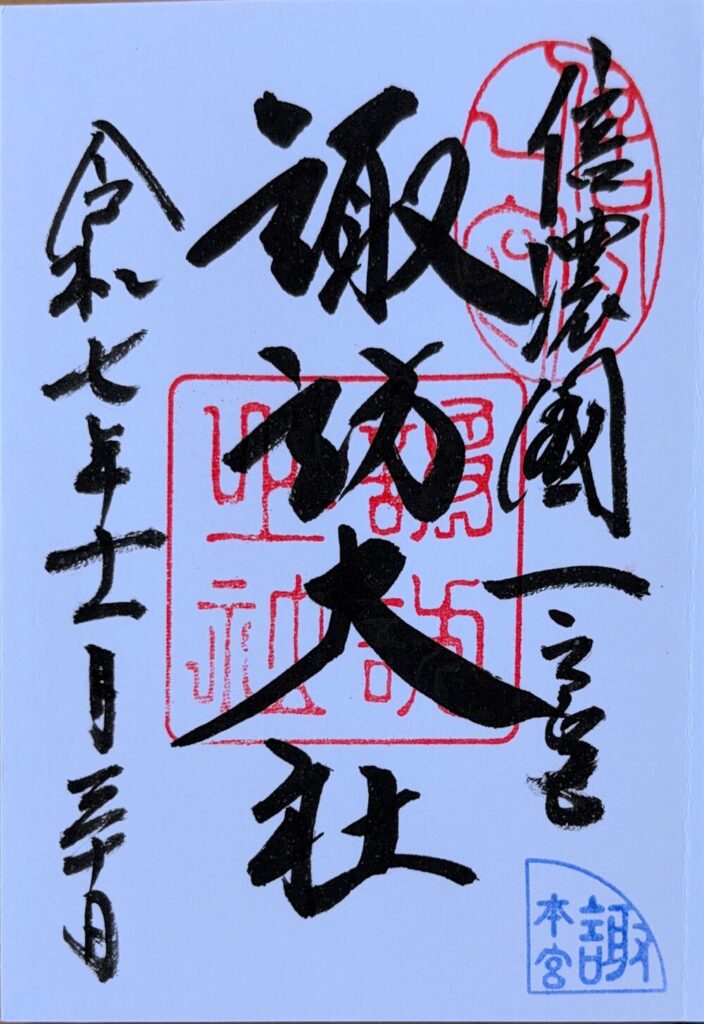 信濃國一之宮
諏訪大社
令和七年十一月三十日
諏
本宮